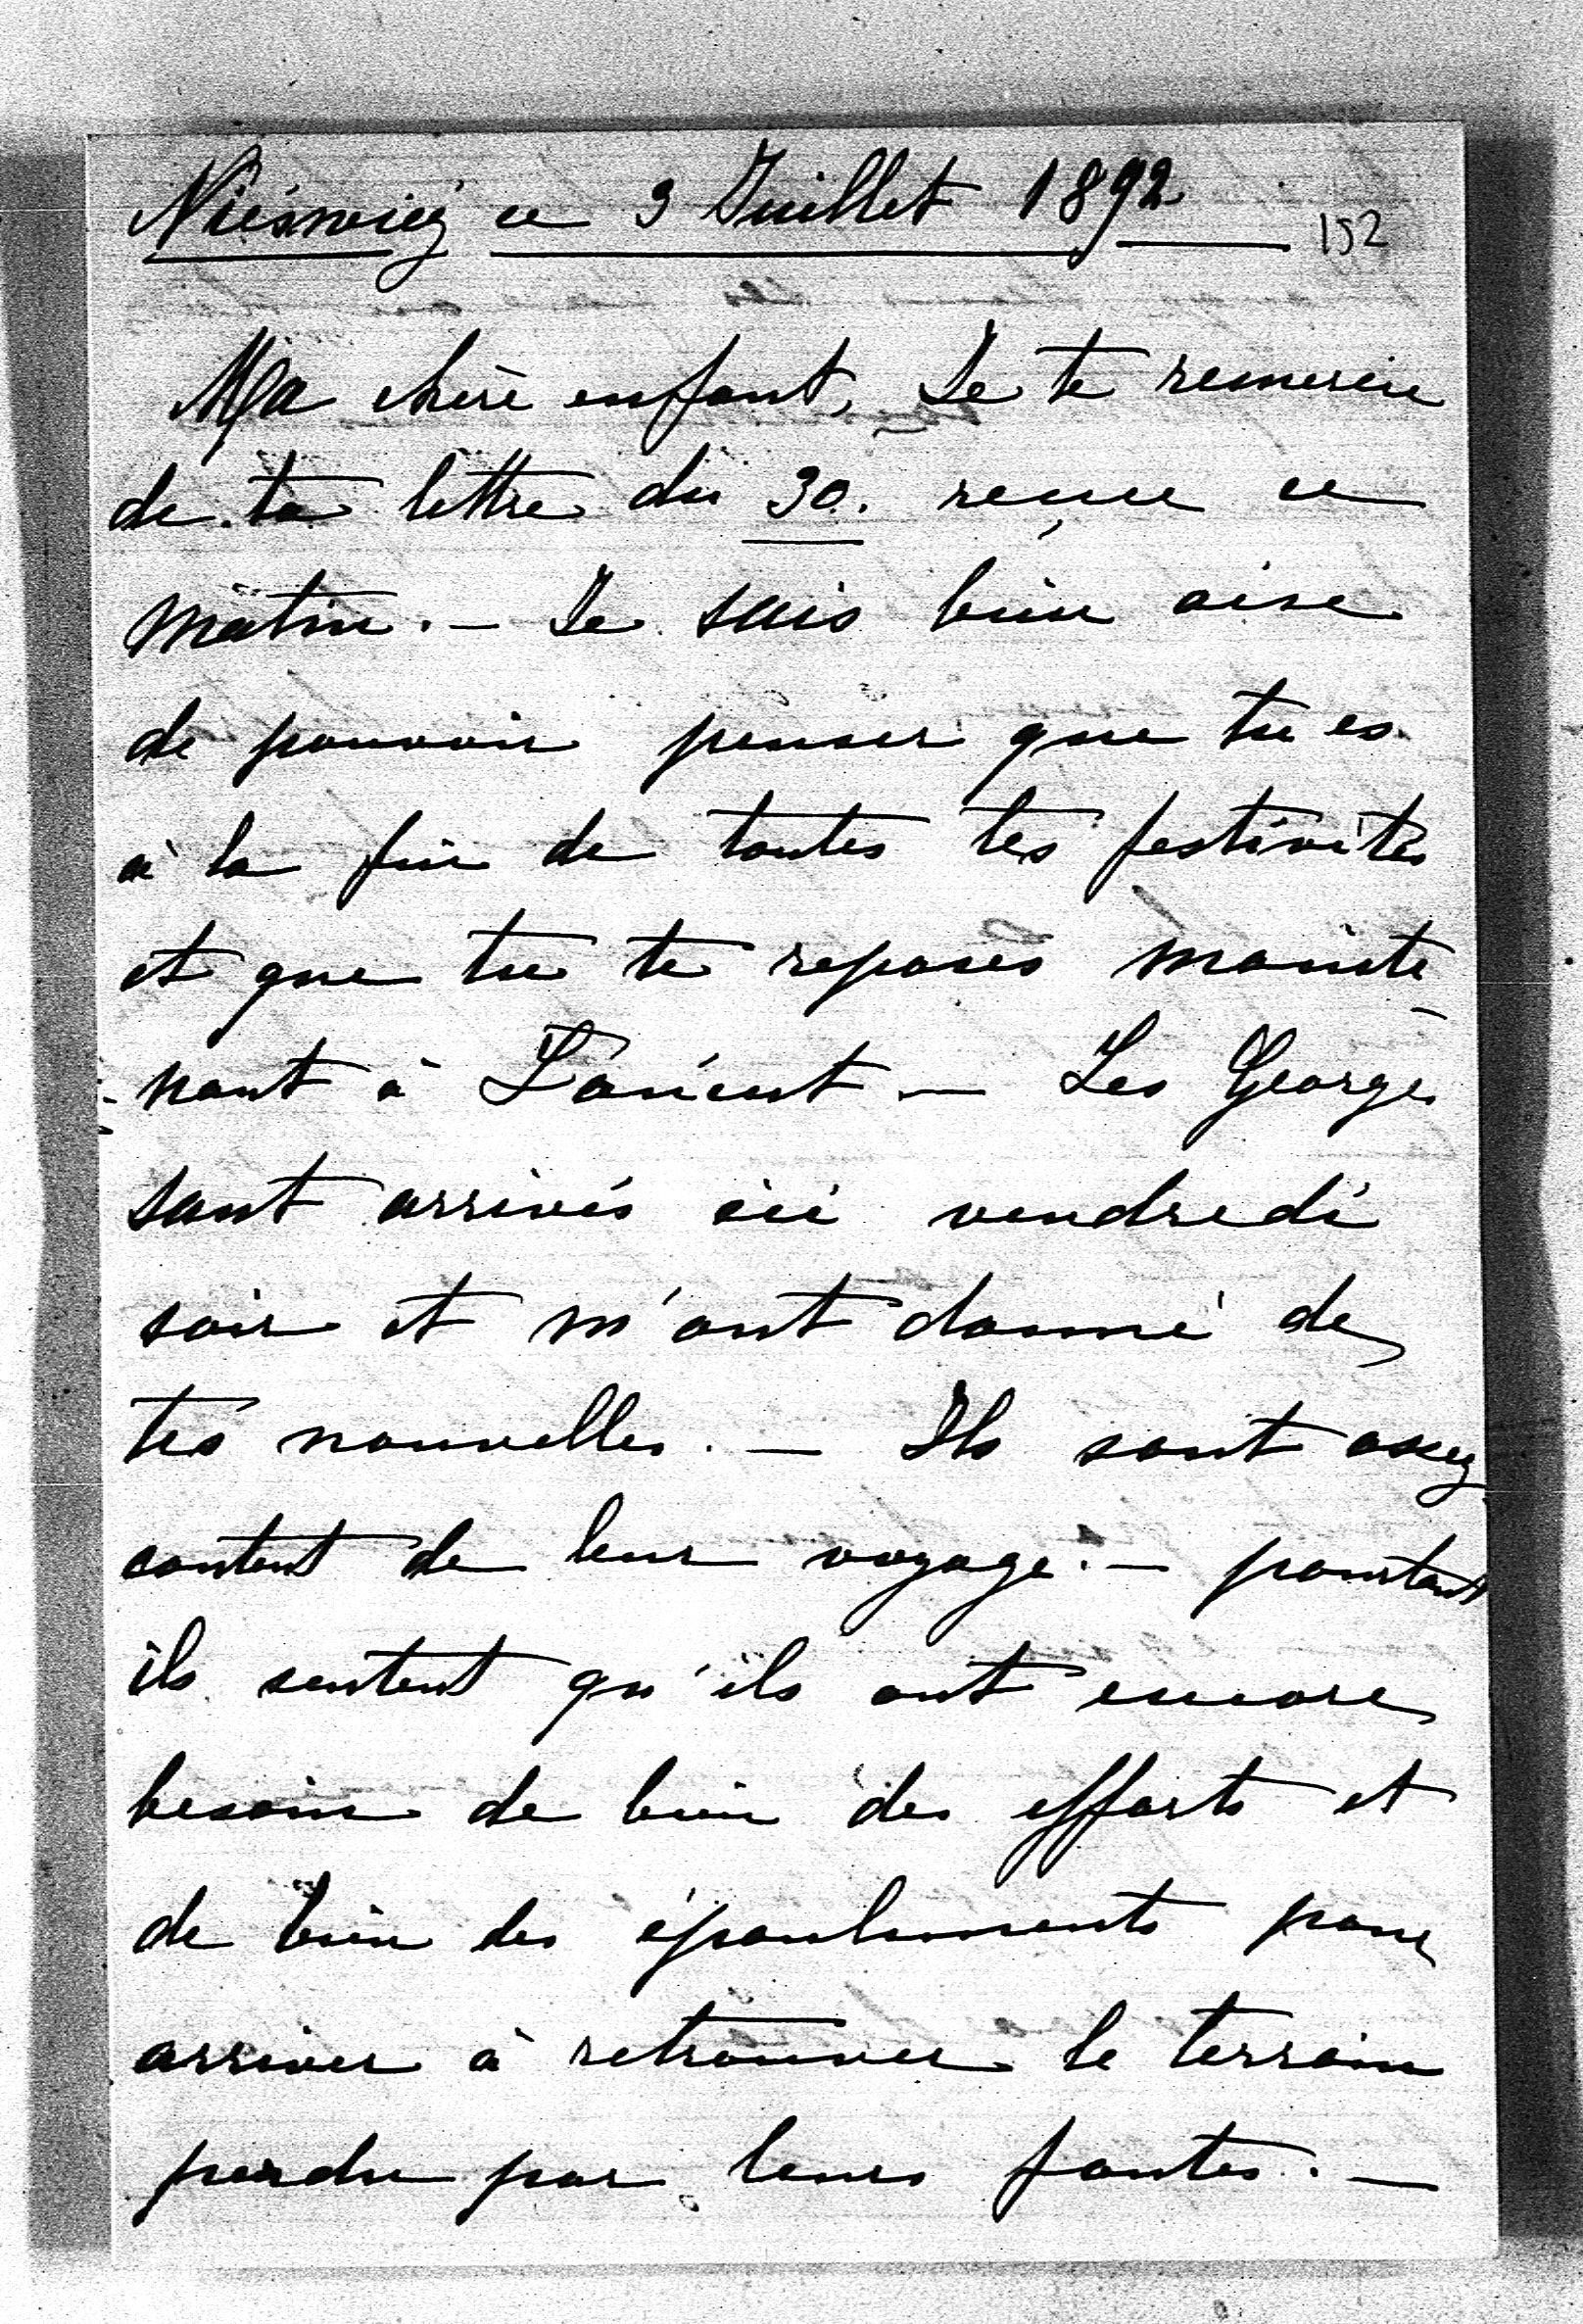 Nieśwież ce 3 Juillet 1892
152
Ma chère enfant, Je te remercie
de ta lettre du 30. reçue ce
matin. — Je suis bien aise
de pouvoir penser que tu es
à la fin de toutes tes festivités
et que tu te reposes mainte-
nant à Łańcut — Les George
sont arrivés ici vendredi
soir et m'ont donné de
tes nouvelles. — Ils sont assez
content de leur voyage. — pourtant
ils sentent qu'ils ont encore
besoin de bien des efforts et
de bien des épaulements pour
arriver à retrouver le terrain
perdu par leurs fautes. —